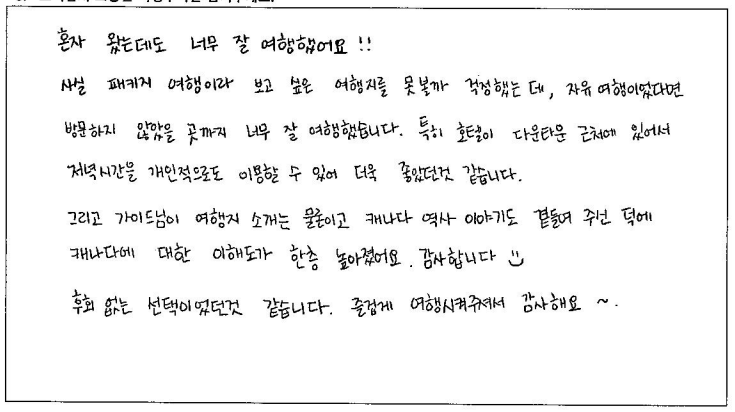 혼자 왔는데도 너무 잘 여행했어요 !!
사실 패키지 여행이라 보고 싶은 여행지를 못볼까 걱정했는 데, 자유 여행이었다면
방문하지 않았을 곳까지 너무 잘 여행했습니다. 특히 호텔이 다운타운 근처에 있어서
저녁시간을 개인적으로도 이용할 수 있어 더욱 좋았던것 같습니다.
그리고 가이드님이 여행지 소개는 물론이고 캐나다 역사 이야기도 곁들여 주신 덕에
캐나다에 대한 이해도가 한층 높아졌어요. 감사합니다
후회 없는 선택이었던것 같습니다. 즐겁게 여행시켜주셔서 감사해요 ~.